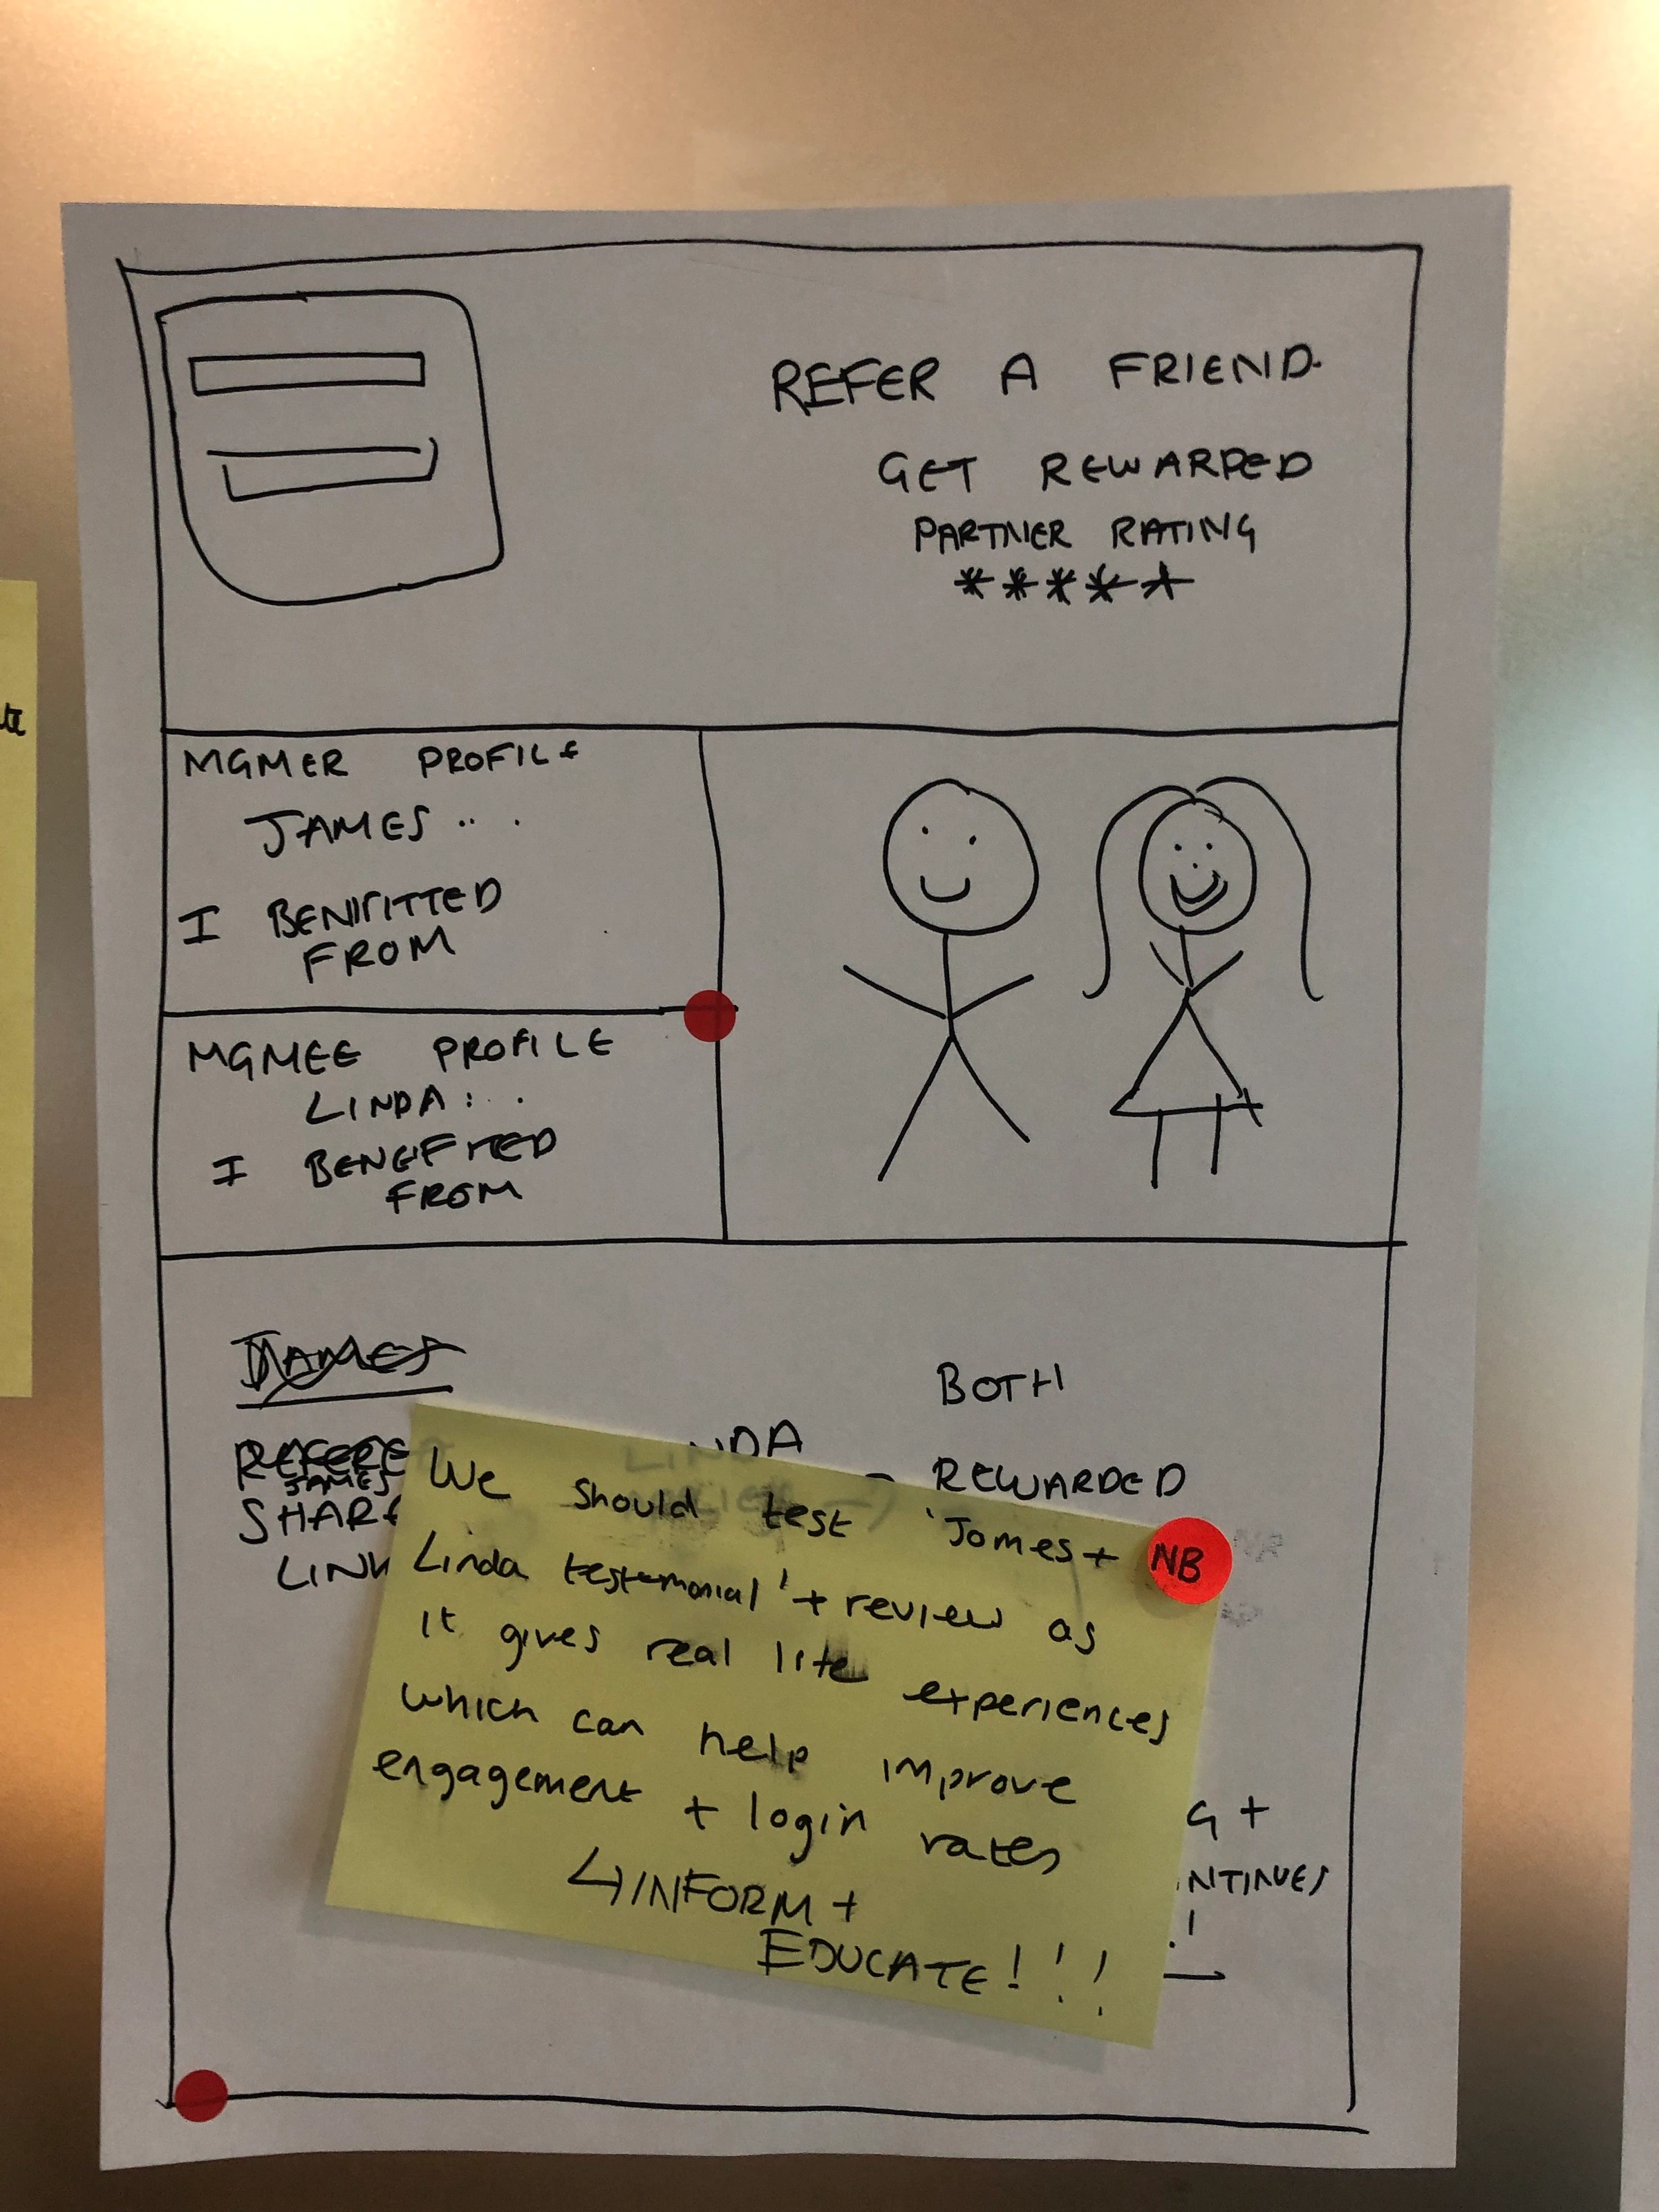 REFER A FRIEND.
GET REWARDED
PARTNER RATING
*****
MGMER PROFILE
JAMES ...
I BENIFITTED
FROM
MGMEE PROFILE
LINDA: ..
I BENEFITED
FROM
JAMES
BOTH
LINDA
REWARDED
JAMES
SHARE
LINK
We should test 'James +
NB
Linda testemonial' + review as
it gives real life experiences
which can help improve
engagement + login rates
↳ INFORM +
EDUCATE!!!
G +
NTINUES
!